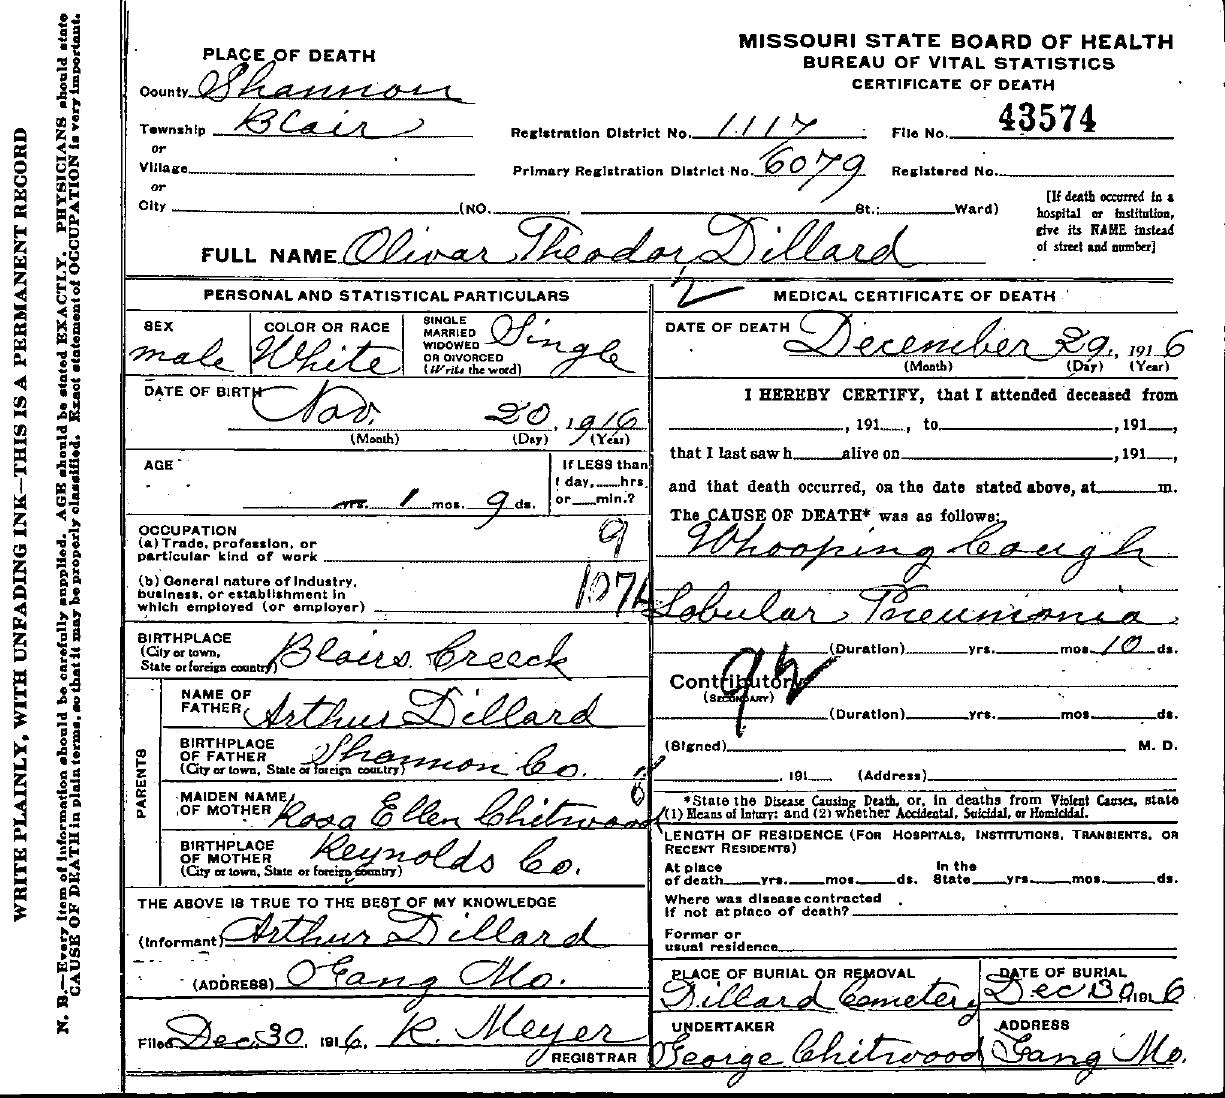 WRITE PLAINLY, WITH UNFADING INK—THIS IS A PERMANENT RECORD
N. B.—Every item of information should be carefully supplied. AGE should be stated EXACTLY. PHYSICIANS should state
CAUSE OF DEATH in plain terms, so that it may be properly classified. Exact statement of OCCUPATION is very important.
MISSOURI STATE BOARD OF HEALTH
BUREAU OF VITAL STATISTICS
CERTIFICATE OF DEATH
PLACE OF DEATH
County Shannon
Township Blair
or
Village
or
City (NO. St.; Ward)
Registration District No. 1117 File No. 43574
Primary Registration District No. 6079 Registered No.
[If death occurred in a
hospital or institution,
give its NAME instead
of street and number]
FULL NAME Olivar Theodor Dillard
2
PERSONAL AND STATISTICAL PARTICULARS
SEX
male
COLOR OR RACE
White
SINGLE
MARRIED
WIDOWED
OR DIVORCED
(Write the word)
Single
DATE OF BIRTH Nov. 20, 1916
(Month) (Day) (Year)
AGE
yrs. 1 mos. 9 ds.
If LESS than
1 day, hrs.
or min.?
OCCUPATION
(a) Trade, profession, or
particular kind of work
9
(b) General nature of industry,
business, or establishment in
which employed (or employer)
BIRTHPLACE
(City or town,
State or foreign country)
Blairs Creeck
PARENTS
NAME OF
FATHER Arthur Dillard
BIRTHPLACE
OF FATHER
(City or town, State or foreign country)
Shannon Co.
MAIDEN NAME
OF MOTHER Rosa Ellen Chitwood
BIRTHPLACE
OF MOTHER
(City or town, State or foreign country)
Reynolds Co.
THE ABOVE IS TRUE TO THE BEST OF MY KNOWLEDGE
(Informant) Arthur Dillard
(ADDRESS) Mo.
Filed Dec. 30, 1916, R. Meyer
REGISTRAR
MEDICAL CERTIFICATE OF DEATH
DATE OF DEATH December 29, 1916
(Month) (Day) (Year)
I HEREBY CERTIFY, that I attended deceased from
, 191 , to , 191 ,
that I last saw h alive on , 191 ,
and that death occurred, on the date stated above, at m.
The CAUSE OF DEATH* was as follows:
Whooping Cough
Lobular Pneumonia
(Duration) yrs. mos. 10 ds.
92
Contributory
(SECONDARY)
(Duration) yrs. mos. ds.
(Signed) M. D.
, 191 (Address)
*State the Disease Causing Death, or, in deaths from Violent Causes, state
(1) Means of Injury; and (2) whether Accidental, Suicidal, or Homicidal.
LENGTH OF RESIDENCE (FOR HOSPITALS, INSTITUTIONS, TRANSIENTS, OR
RECENT RESIDENTS)
At place In the
of death yrs. mos. ds. State yrs. mos. ds.
Where was disease contracted
if not at place of death?
Former or
usual residence
PLACE OF BURIAL OR REMOVAL
Dillard Cemetery
DATE OF BURIAL
Dec 30, 1916
UNDERTAKER
George Chitwood
ADDRESS
Mo.